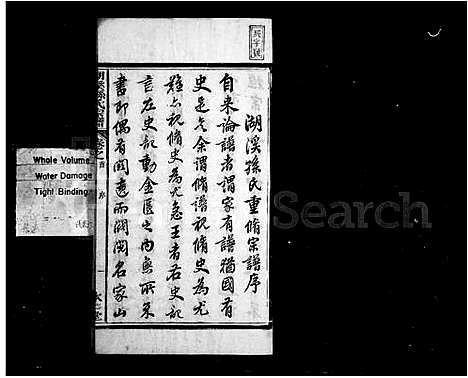 湖溪孫氏重脩宗譜序
自来論譜者謂家有譜猶國有
史是矣余謂脩譜視脩史為尤
難亦視脩史為尤急王者右史記
言左史記動金匱之内無所不
書即偶有闕遺而閥閱名家山
湖溪孫氏宗譜
卷之首
序
一
Whole Volume
Water Damage
Tight Binding
Search